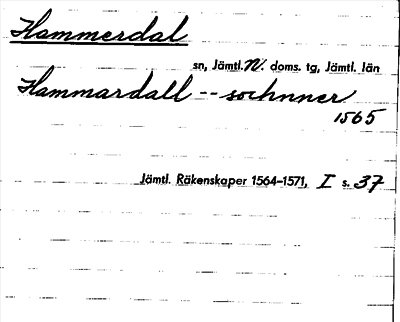 Hammerdal
sn, Jämtl. N. doms. tg, Jämtl. län
Hammardall -- sochnner
1565
Jämtl. Räkenskaper 1564-1571, I s. 37